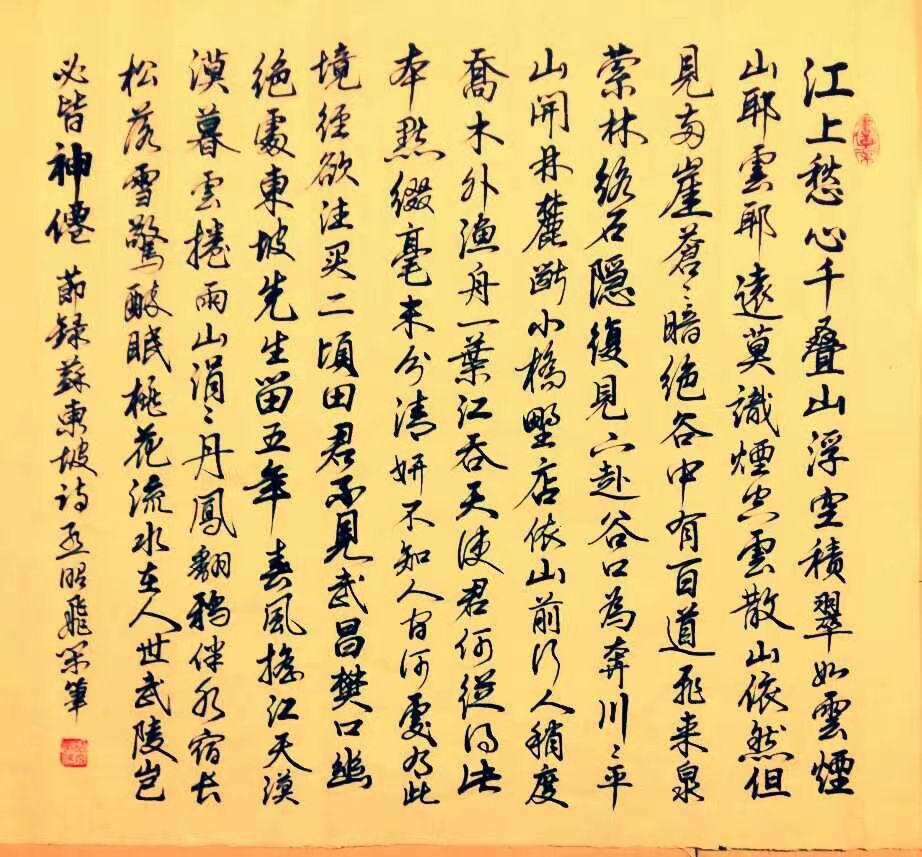 江上愁心千叠山浮空積翠如雲煙
山耶雲耶遠莫識煙空雲散山依然但
見兩崖蒼〻暗绝谷中有百道飛来泉
萦林絡石隱復見下赴谷口為奔川〻平
山開林麓斷小橋野店依山前行人稍度
喬木外漁舟一葉江吞天使君何從得此
本點綴毫末分清妍不知人间何處有此
境徑欲往买二頃田君不見武昌樊口幽
绝處東坡先生留五年春風摇江天漠
漠暮雲捲雨山涓〻丹鳳翻鸦伴水宿长
松落雪驚醉眠桃花流水在人世武陵岂
必皆神僊 節録蘇東坡詩 昭飛筆